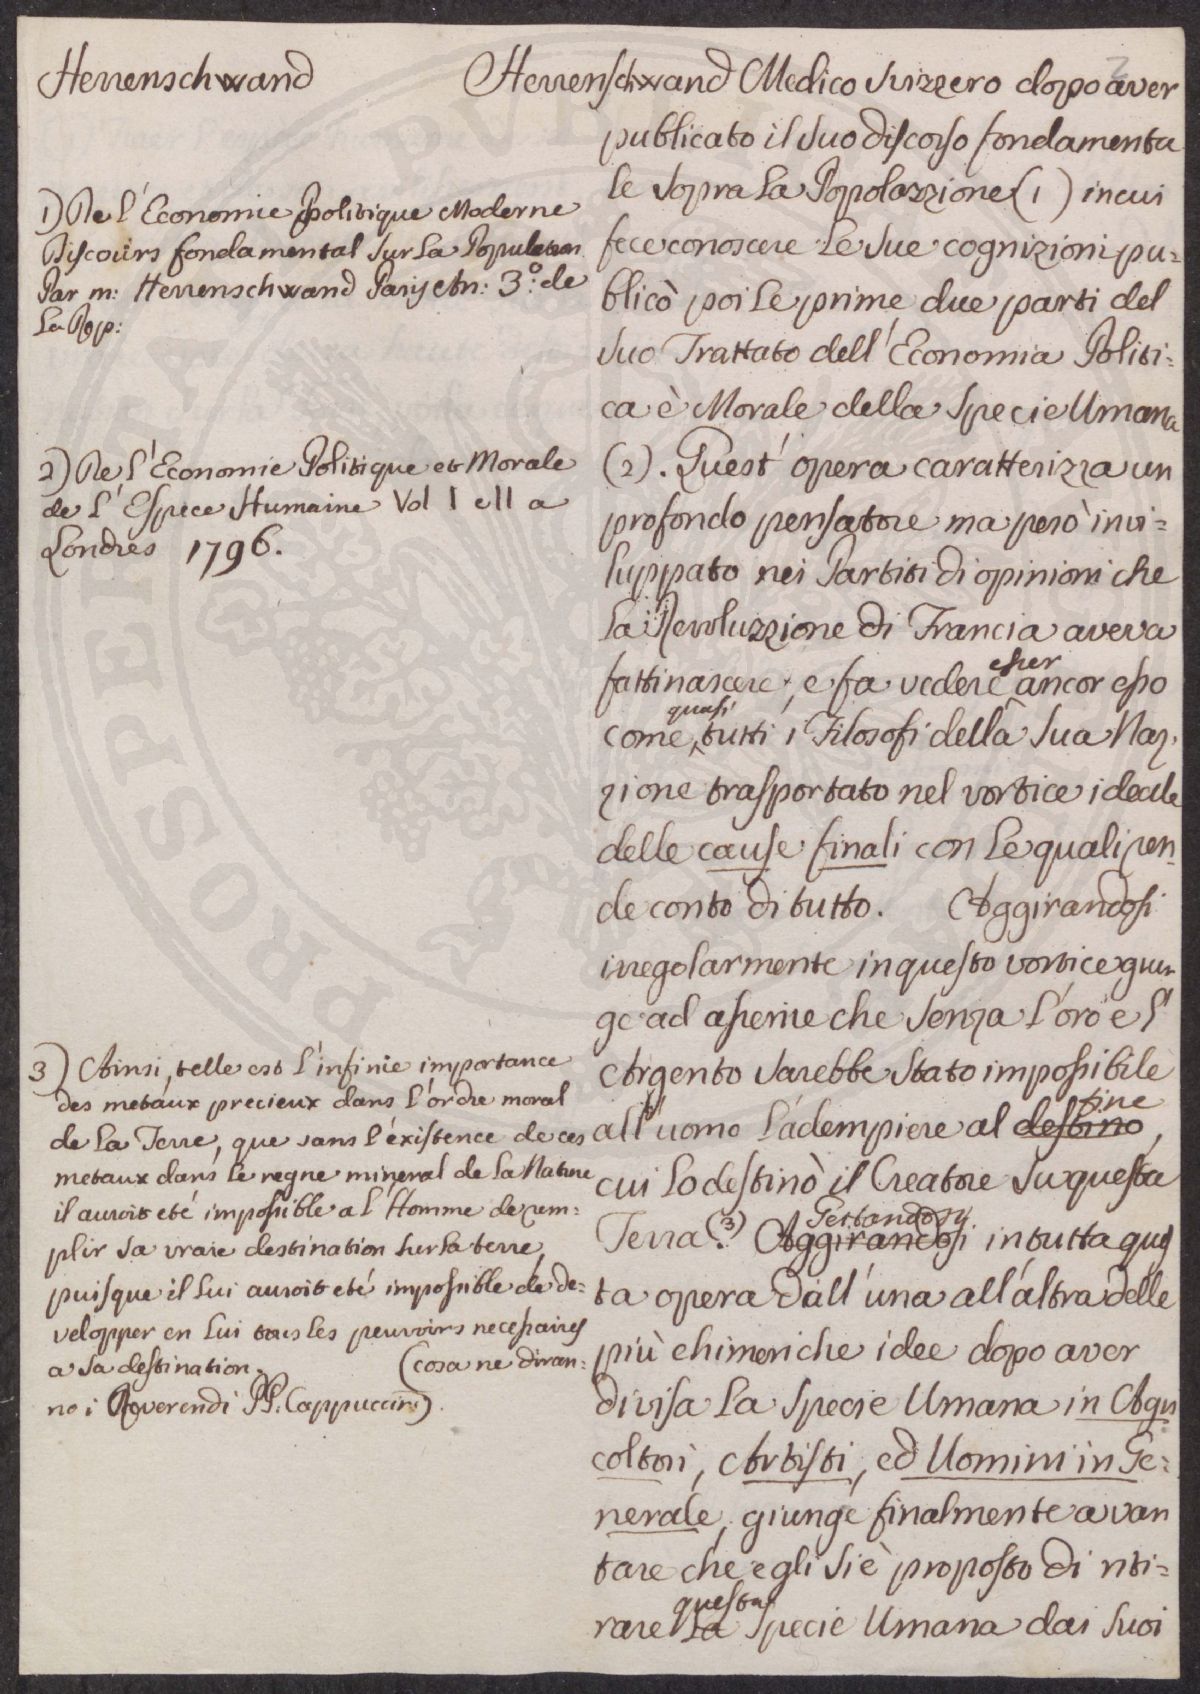 Herrenschwand
1) De l'Economie Politique Moderne
Discours fondamental sur la Population
Par m: Herrenschwand
3.° de
La Pop:
2) De l'Economie Politique et Morale
de l'Espece Humaine Vol I e II a
Londres 1796.
3) Ainsi, telle est l'infinie importance
des metaux precieux dans l'ordre moral
de la Terre, que sans l'existence de ces
metaux dans le regne mineral de la Nature
il auroit eté impossible a l'Homme de rem-
plir sa vraie destination sur la terre,
puisque il lui auroit eté impossible de de=
velopper en lui tous les pouvoirs necessaires
a sa destination. (cosa ne diran=
no i Reverendi PP. Cappuccini).
2
Herrenschwand Medico Svizzero dopo aver
publicato il suo discorso fondamenta
le sopra la Popolazzione (1) in cui
fece conoscere le sue cognizioni pu=
blicò poi le prime due parti del
suo Trattato dell'Economia Politi=
ca è Morale della Specie Umana
(2). Quest'opera caratterizza un
profondo pensatore ma però invi=
luppato nei Partiti di opinioni che
la Revoluzzione di Francia aveva
fatti nascere, e fa vedere esser ancor esso
come quasi tutti i Filosofi della sua Naz.
zione trasportato nel vortice ideale
delle cause finali con le quali ren
de conto di tutto. Aggirandosi
irregolarmente in questo vortice giun
ge ad asserire che senza l'oro e l'
Argento sarebbe stato impossibile
all'uomo l'adempiere al destino fine,
cui lo destinò il Creatore su questa
Terra. (3) Aggirandosi Gettandosi in tutta ques
ta opera dall'una all'altra delle
più chimeriche idee dopo aver
divisa la Specie Umana in Agri
coltori, Artisti, ed Uomini in Ge=
nerale, giunge finalmente a van
tare che egli si è proposto di riti=
rare la questa Specie Umana dai suoi